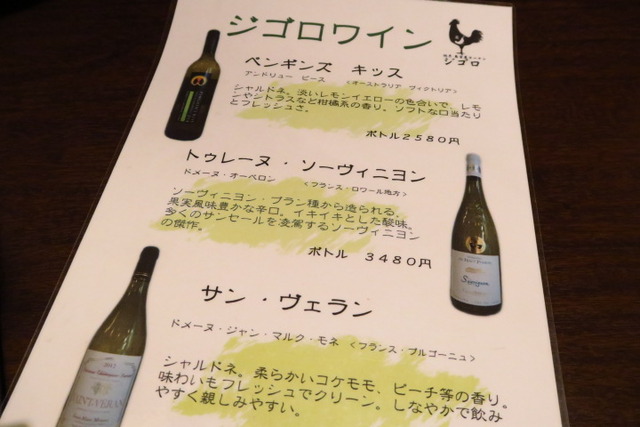 ジゴロワイン
ジゴロ
ペンギンズ キッス
アンドリュー ピース <オーストラリア ヴィクトリア>
シャルドネ。淡いレモンイエローの色合いで、レモ
ンやシトラスなど柑橘系の香り。ソフトな口当たり
とフレッシュさ。
ボトル2580円
トゥレーヌ・ソーヴィニヨン
ドメーヌ・オーベロン <フランス・ロワール地方>
ソーヴィニヨン・ブラン種から造られる、
果実風味豊かな辛口。イキイキとした酸味。
多くのサンセールを凌駕するソーヴィニヨン
の傑作。
ボトル 3480円
Sauvignon
サン・ヴェラン
ドメーヌ・ジャン・マルク・モネ <フランス・ブルゴーニュ>
シャルドネ。柔らかいコケモモ、ピーチ等の香り。
味わいもフレッシュでクリーン。しなやかで飲み
やすく親しみやすい。
SAINT-VERAN